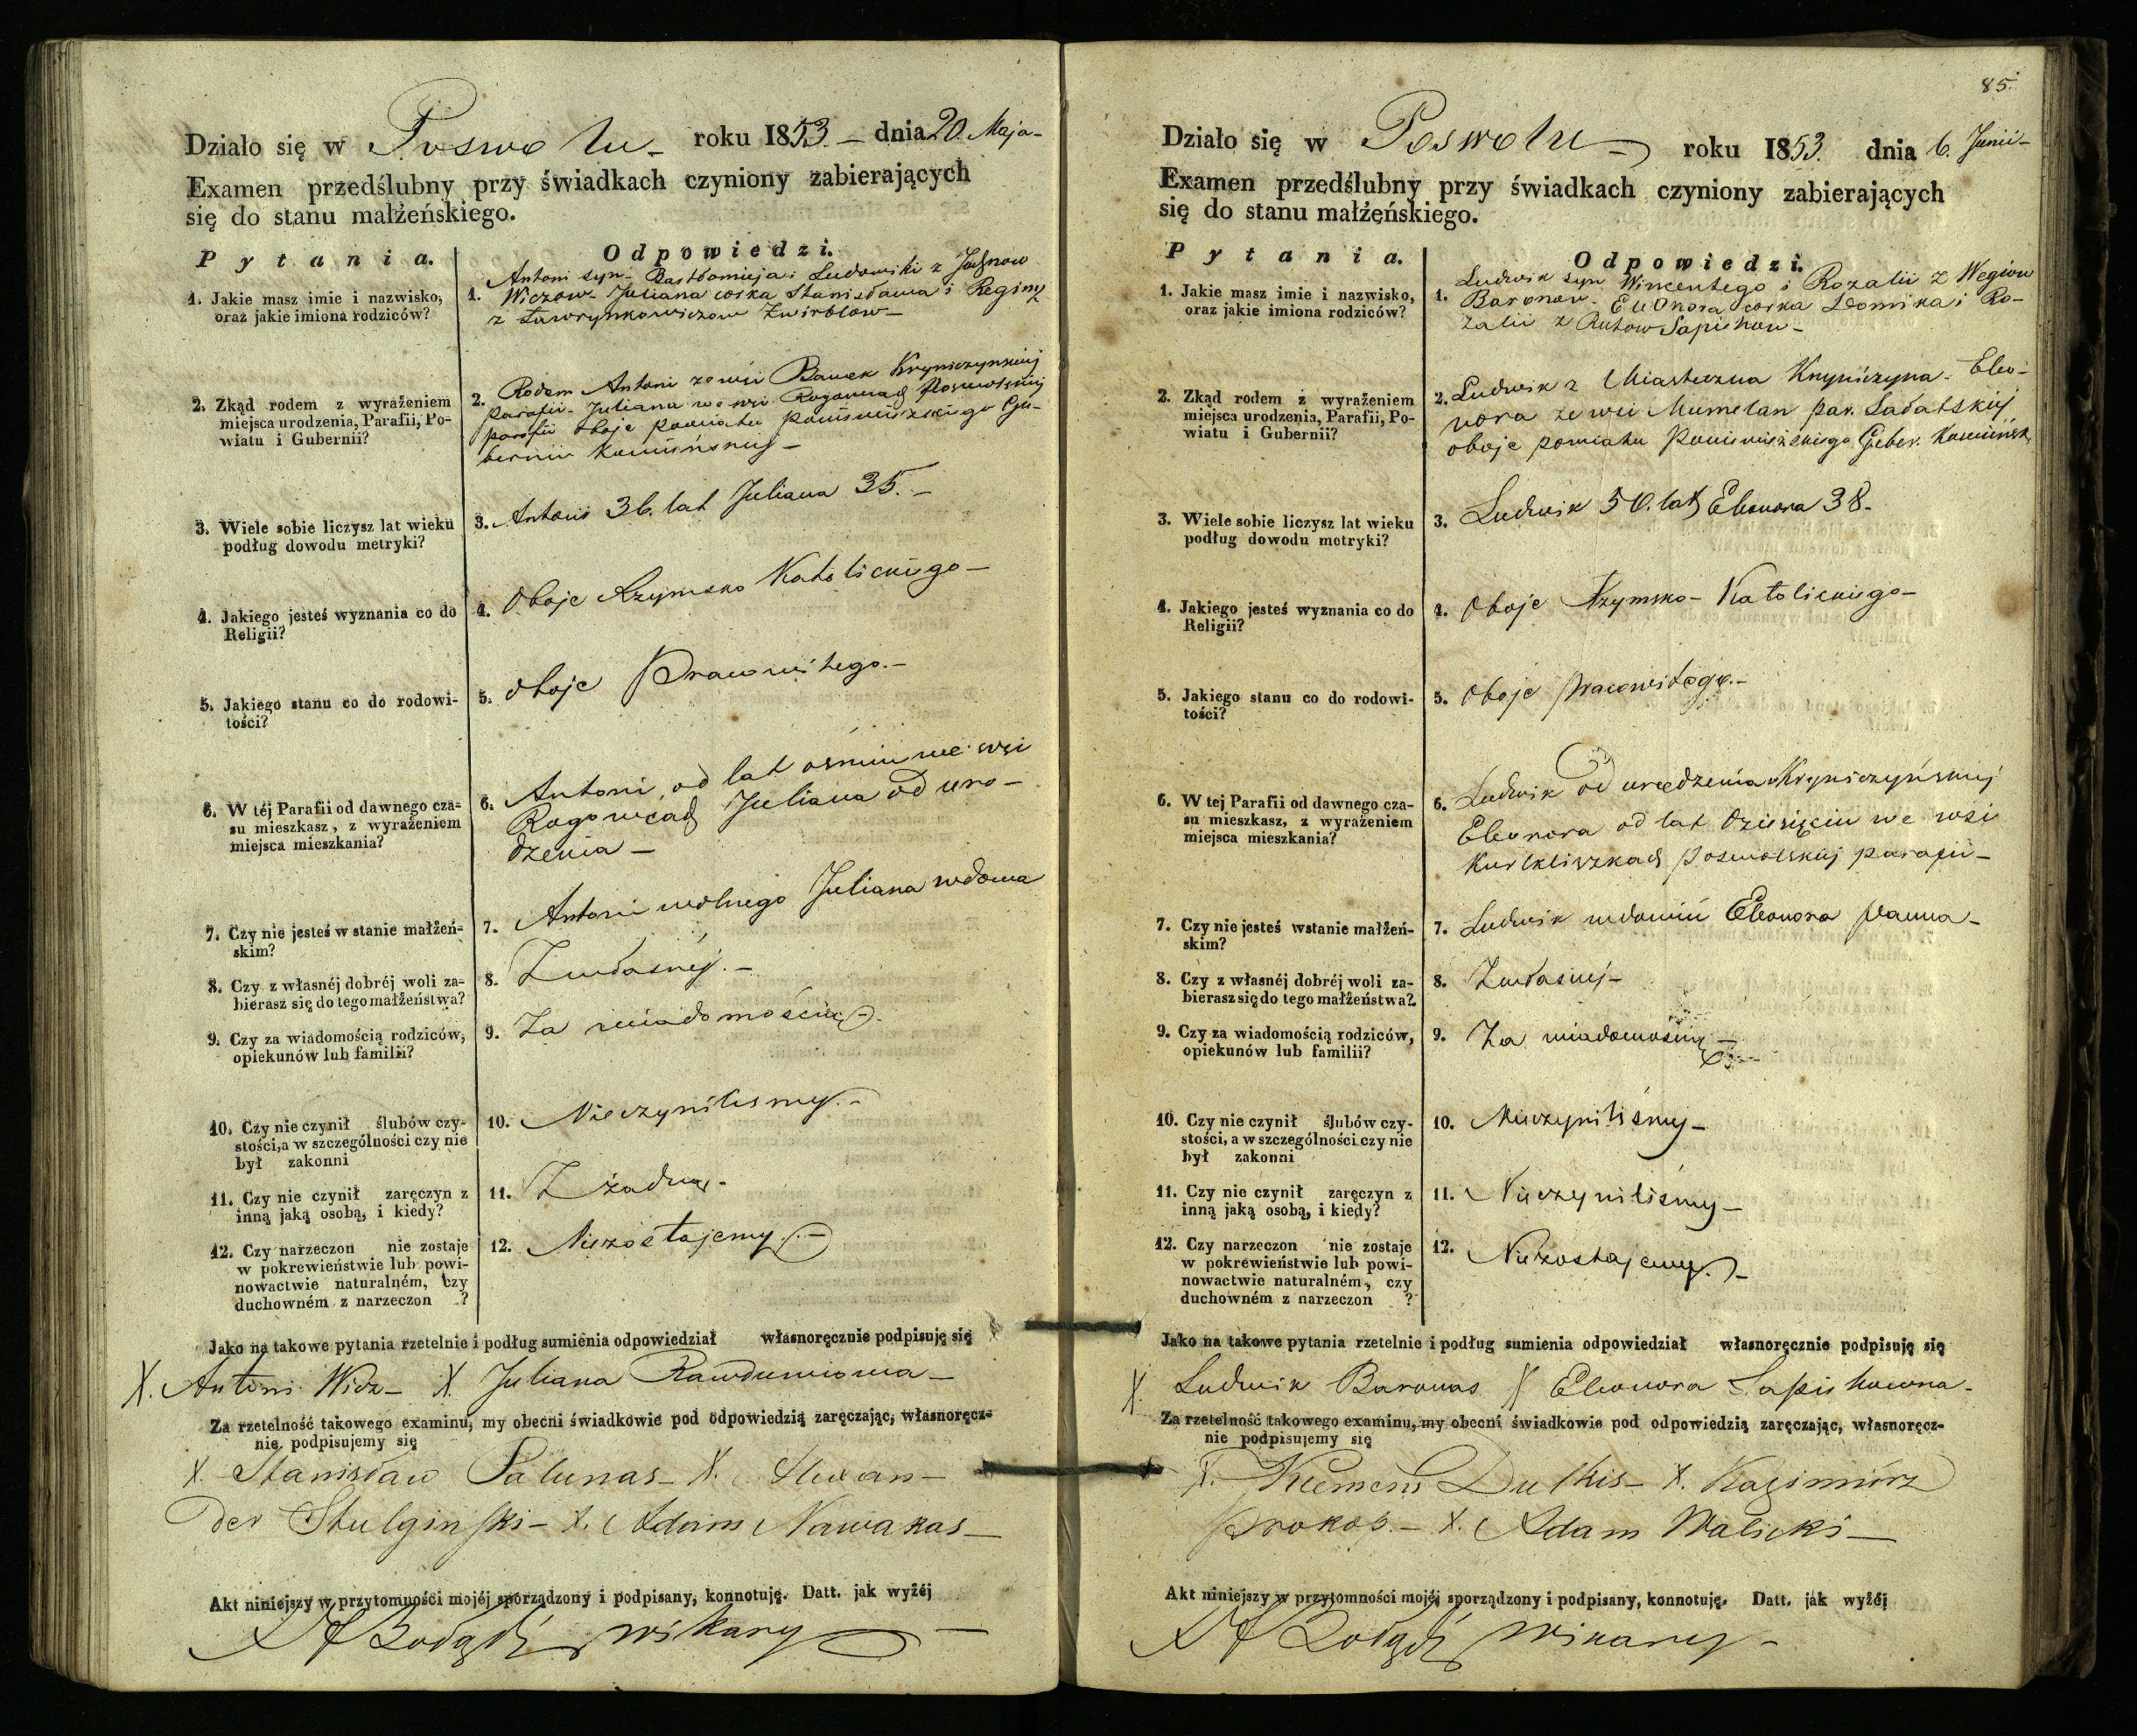 Działo się w Poswolu roku 1853. – dnia 20. Maja –
Examen przedślubny przy świadkach czyniony zabierających
się do stanu małżeńskiego.
Pytania.
Odpowiedzi.
1. Jakie masz imie i nazwisko,
oraz jakie imiona rodziców?
1. Antoni syn Bartłomieja i Ludowiki z
Wiczow – Juliana corka Stanisława i Reginy
z Ławrynkowiczow Zwirblow –
2. Zkąd rodem z wyrażeniem
miejsca urodzenia, Parafii, Po-
wiatu i Gubernii?
2. Rodem Antoni ze wsi Kryniczynskiej
parafii – Juliana we wsi Poswolskiej
parafii oboje powiatu Poniewiezskiego Gu-
bernii Kowieńskiej –
3. Wiele sobie liczysz lat wieku
podług dowodu metryki?
3. Antoni 36. lat Juliana 35. –
4. Jakiego jesteś wyznania co do
Religii?
4. Oboje Rzymsko Katolickiego –
5. Jakiego stanu co do rodowi-
tości?
5. Oboje Pracowitego. –
6. W téj Parafii od dawnego cza-
su mieszkasz, z wyrażeniem
miejsca mieszkania?
6. Antoni od lat osmiu we wsi
Juliana od uro-
dzenia –
7. Czy nie jesteś w stanie małżeń-
skim?
7. Antoni wolnego Juliana wdowa
8. Czy z własnéj dobréj woli za-
bierasz się do tego małżeństwa?
8. Zwłasnéj. –
9. Czy za wiadomością rodziców,
opiekunów lub familii?
9. Za wiadomością –
10. Czy nie czynił ślubów czy-
stości, a w szczególności czy nie
był zakonni
10. Nieczynilismy. –
11. Czy nie czynił zaręczyn z
inną jaką osobą, i kiedy?
11. Z żadną. –
12. Czy narzeczon nie zostaje
w pokrewieństwie lub powi-
nowactwie naturalném, czy
duchowném z narzeczon ?
12. Niezostajemy. –
Jako na takowe pytania rzetelnie i podług sumienia odpowiedział własnoręcznie podpisuję się
X. Antoni Wicz – X. Juliana Rawduniowa –
Za rzetelność takowego examinu, my obecni świadkowie pod odpowiedzią zaręczając, własnoręcz-
nie podpisujemy się
X. Stanisław Salunas – X. Alexan-
der Stulginski – X. Adam Nawakas –
Akt niniejszy w przytomności mojéj sporządzony i podpisany, konnotuję. Datt. jak wyżéj
wikary –
85.
Działo się w Poswolu – roku 1853. dnia 6. Junii –
Examen przedślubny przy świadkach czyniony zabierających
się do stanu małżeńskiego.
Pytania.
Odpowiedzi.
1. Jakie masz imie i nazwisko,
oraz jakie imiona rodziców?
1. Ludwik syn Wincentego i Rozalii z Wegiow
Baronow – Eleonora corka Dominika i Ro-
zalii z Rutow Sapiehow –
2. Zkąd rodem z wyrażeniem
miejsca urodzenia, Parafii, Po-
wiatu i Gubernii?
2. Ludwik z Miasteczka Kryniczyna – Eleo-
nora ze wsi Mumelan par. Sałatskiej
oboje powiatu Poniewiezskiego Guber. Kowieńsk.
3. Wiele sobie liczysz lat wieku
podług dowodu metryki?
3. Ludwik 50. lat Eleonora 38 –
4. Jakiego jesteś wyznania co do
Religii?
4. Oboje Rzymsko – Katolickiego –
5. Jakiego stanu co do rodowi-
tości?
5. Oboje pracowitego. –
6. W tej Parafii od dawnego cza-
su mieszkasz, z wyrażeniem
miejsca mieszkania?
6. Ludwik od urodzenia Kryniczyńskiej
Eleonora od lat dziesięciu we wsi
Poswolskiej parafii –
7. Czy nie jesteś wstanie małżeń-
skim?
7. Ludwik wdowiec Eleonora panna –
8. Czy z własnéj dobréj woli za-
bierasz się do tego małżeństwa?
8. Zwłasnej –
9. Czy za wiadomością rodziców,
opiekunów lub familii?
9. Za wiadomością –
10. Czy nie czynił ślubów czy-
stości, a w szczególności czy nie
był zakonni
10. Nieczyniliśmy –
11. Czy nie czynił zaręczyn z
inną jaką osobą, i kiedy?
11. Nieczyniliśmy –
12. Czy narzeczon nie zostaje
w pokrewieństwie lub powi-
nowactwie naturalném, czy
duchowném z narzeczon ?
12. Niezostajemy. –
Jako na takowe pytania rzetelnie i podług sumienia odpowiedział własnoręcznie podpisuję się
X Ludwik Baronas X Eleonora Sapiehowna –
Za rzetelność takowego examinu, my obecni świadkowie pod odpowiedzią zaręczając, własnoręcz-
nie podpisujemy się
X. Klemens Dulkis – X. Kazimirz
Prokop. – X. Adam Walicki –
Akt niniejszy w przytomności mojéj sporządzony i podpisany, konnotuję. Datt. jak wyżéj
wikary –